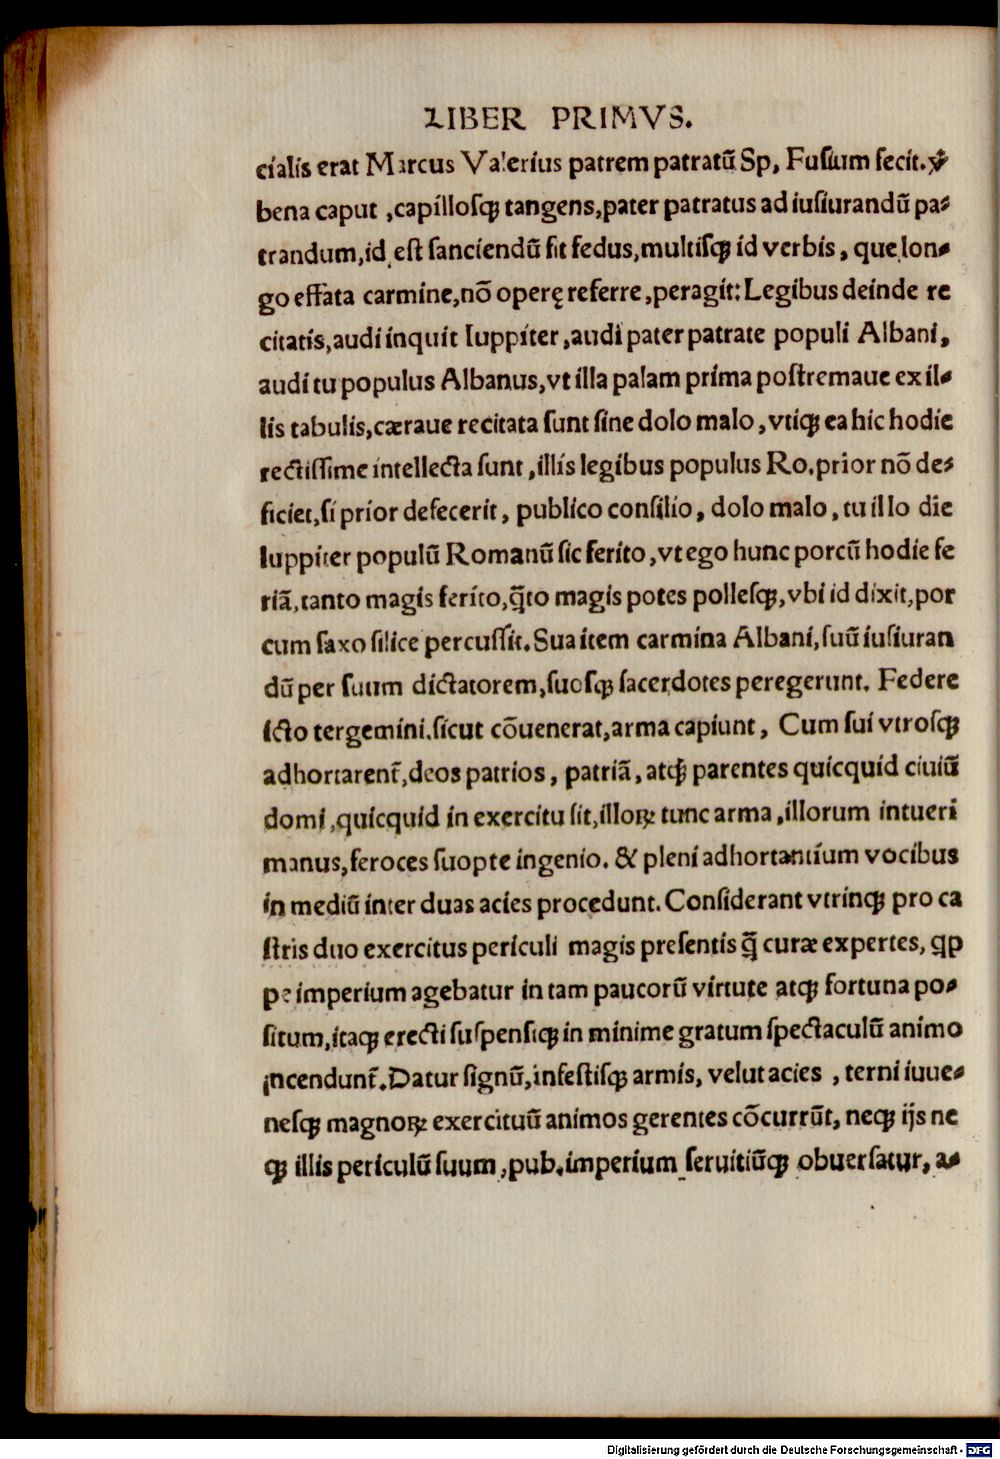 LIBER PRIMVS.
cialis erat Marcus Valerius patrem patratū Sp, Fusium fecit. ꝟ
bena caput ,capillosqꝫ tangens,pater patratus ad iusiurandū pa⸗
trandum,id est sanciendū fit fedus,multisqꝫ id verbis , que lon⸗
go effata carmine,nō operę referre ,peragit: Legibus deinde re
citatis,audi inquit Iuppiter ,audi pater patrate populi Albani ,
audi tu populus Albanus,vt illa palam prima postremaue ex il⸗
lis tabulis,cæraue recitata sunt sine dolo malo ,vtiqꝫ ea hic hodie
rectissime intellecta sunt ,illis legibus populus Ro.prior nō de⸗
ficiet,si prior defecerit , publico consilio , dolo malo , tu illo die
Iuppiter populū Romanū sic ferito ,vt ego hunc porcū hodie fe
riā,tanto magis ferito,q̄to magis potes pollesqꝫ ,vbi id dixit,por
cum saxo silice percussit.Sua item carmina Albani,suū iusiuran
dū per suum dictatorem,suosqꝫ sacerdotes peregerunt. Federe
icto tergemini.sicut cōuenerat,arma capiunt , Cum sui vtrosqꝫ
adhortarent̄,deos patrios , patriā , atqꝫ parentes quicquid ciuiū
domi ,quicquid in exercitu sit,illoꝝ tunc arma ,illorum intueri
manus,feroces suopte ingenio. & pleni adhortantium vocibus
in mediū inter duas acies procedunt. Considerant vtrinqꝫ pro ca
stris duo exercitus periculi magis presentis q̄ curæ expertes, qꝑ
pe imperium agebatur in tam paucorū virtute atqꝫ fortuna po⸗
situm,itaqꝫ erecti suspensiqꝫ in minime gratum spectaculū animo
incendunt̄.Datur signū,infestisqꝫ armis, velut acies , terni iuue⸗
nesqꝫ magnoꝝ exercituū animos gerentes cōcurrūt, neqꝫ ijs ne
qꝫ illis periculū suum ,pub.imperium seruitiūqꝫ obuersatur, a⸗
Digitalisierung gefördert durch die Deutsche Forschungsgemeinschaft - DFG